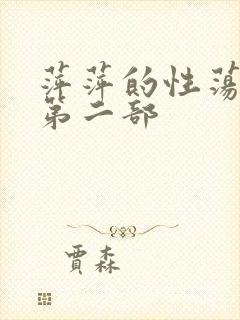 萍萍的性荡
第二部
贾森